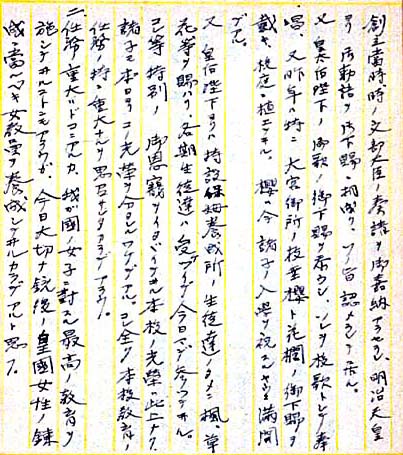 創立当時時ノ文部大臣ノ奏請ヲ御嘉納アラセラレ、明治天皇
ヨリ御勅語ヲ御下賜ニ相成リ、ソノ旨認メラレテ居ル。
又 皇太后陛下ノ御歌ノ御下賜ヲ忝ウシ、ソレヲ校歌トシテ奉
唱、又昨年ハ特ニ大宮御所ノ枝垂櫻ト花欄ノ御下賜ヲ
戴キ、校庭ニ植エテアル。櫻ハ今諸子ノ入学ヲ祝スルヤウニ満開
デアル。
又 皇后陛下ヨリハ特設保姆養成所ノ生徒達ノタメニ楓、草
花等ヲ賜ハリ、各期生徒達ハ今日マデ参ッテヰル。
己等特別ノ御恩寵ヲイタダイテヰル本校ノ光栄ハ此上ナク
諸子モ本日ヨリコノ光栄ヲ分ツワケデアル。コレ全ク本校教育ノ
任務ノ特ニ重大ナルヲ思召サレタカラデアラウ。
二、任務ノ重大ナルコトニアル。我ガ国ノ女子ニ対スル最高ノ教育ヲ
施シテヰルトコロデアルガ、今日大切ナ銃後ノ皇國女性ノ錬
成ニ当ルベキ女教員ヲ養成シテヰルカラデアルト思フ。